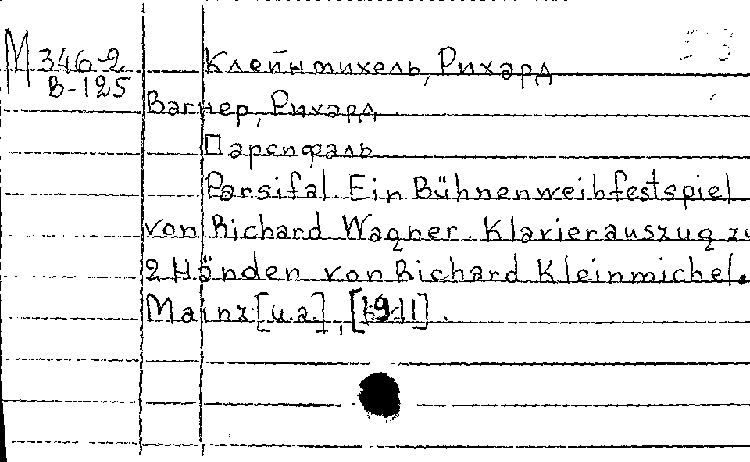 М 346-2 Клейнмихель, Рихард
В-125
Вагнер, Рихард
Парсифаль
Parsifal. Ein Bühnenweihfestspiel
von Richard Wagner. Klavierauszug zu
2 Händen von Richard Kleinmichel.
Mainz [u.a.], [1911].